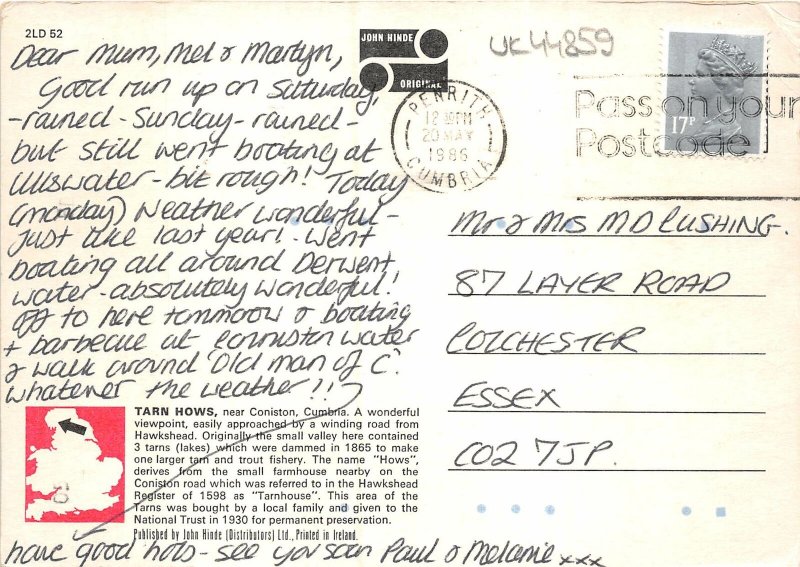 2LD 52
Dear Mum, Mel & Martyn,
Good run up on Saturday,
-rained - Sunday - rained -
but still went boating at
Ullswater - bit rough! Today
(monday) Weather wonderful -
just like last year! - Went
boating all around Derwent
water - absolutely wonderful!
Off to here tommorow & boating
+ barbecue at Conniston water
& walk around 'Old man of C'.
whatever the weather!!
have good hols - see you soon Paul & Melanie xxx
JOHN HINDE
ORIGINAL
UK44859
PENRITH
20 MAY
1986
CUMBRIA
Pass on your
Postcode
17P
Mr & Mrs M D LUSHING.
87 LAYER ROAD
COLCHESTER
ESSEX
CO2 7JP.
TARN HOWS, near Coniston, Cumbria. A wonderful
viewpoint, easily approached by a winding road from
Hawkshead. Originally the small valley here contained
3 tarns (lakes) which were dammed in 1865 to make
one larger tarn and trout fishery. The name "Hows",
derives from the small farmhouse nearby on the
Coniston road which was referred to in the Hawkshead
Register of 1598 as "Tarnhouse". This area of the
Tarns was bought by a local family and given to the
National Trust in 1930 for permanent preservation.
Published by John Hinde (Distributors) Ltd., Printed in Ireland.